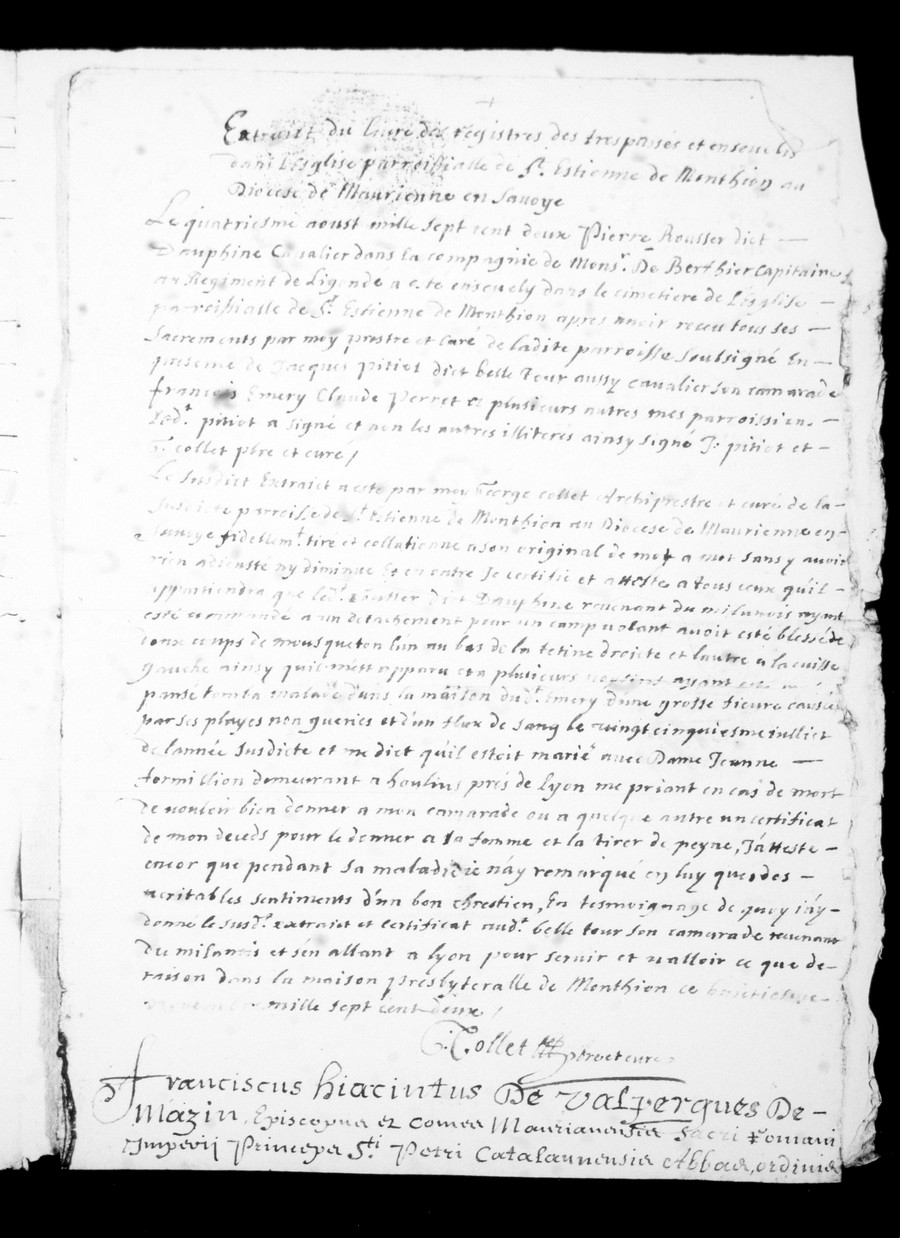 Extraict du livre des registres des trespassés et ensevelis
dans l'esglise parroissialle de St. Estienne de Monthion au
Diocese de Maurienne en Savoye
Le quatriesme aoust mille sept cent deux Pierre Rousser dict —
Dauphine Cavalier dans la compagnie de Monsr. De Berthier capitaine
au Regiment de Ligonde a este ensevely dans le cimetiere de L'esglise —
parroissialle de St. Estienne de Monthion apres avoir receu tous ses —
Sacrements par moy prestre et curé de ladite parroisse soubsigné En —
presence de Jacques pitiot dict belle Tour aussy cavalier son camarade
françois Emery Claude Perret et plusieurs autres mes parroissiens —
Led.t pitiot a signé et non les autres illiteres ainsy signé J: pitiot et —
G. collet pbre et curé /
Le susdict Extraict a esté par moy George collet Archiprestre et curé de la —
susdicte parroisse de St. Estienne de Monthion au Diocese de Maurienne en —
Savoye fidellemt. tiré et collationne a son original de mot a mot sans y avoir
rien adiousté ny diminue Et en outre Je certifie et atteste a tous ceux qu'il —
appartiendra que led.t Rousser dict Dauphine revenant du milanois ayant
esté commandé a un detachement pour un camp volant avoit esté blessé de
deux coups de mousqueton l'un au bas de la tetine droicte et lautre a la cuisse
gauche ainsy quil m'ett apparu et a plusieurs ayant esté
pansé tomba malade dans la maison dud.t Emery d'une grosse fievre causée
par ses playes non gueries et d'un flux de sang le vingt cinquiesme iulliet
de l'année susdicte et me dict qu'il estoit marié avec Dame Jeanne —
formillion demeurant a houlins prés de Lyon me priant en cas de mort
de vouloir bien donner a mon camarade ou a quelque autre un certificat
de mon deceds pour le donner a sa femme et la tirer de peyne, J'atteste —
encor que pendant sa maladie ie n'ay remarqué en luy que des —
veritables sentiments d'un bon chrestien, En tesmoignage de quoy i'ay —
donné le susd.t extraict et certificat aud.t belle tour son camarade revenant
Du milanois et s'en allant a lyon pour servir et valloir ce que de —
raison dans la maison presbyteralle de Monthion ce
mille sept cent deux /
G. Collet pbre et curé
Franciscus hiacintus De Valpergues De —
Mazin Episcopus et Comes Maurianensis Sacri Romani
Imperii Princeps Sti Petri Catalaunensis Abbas, ordinis